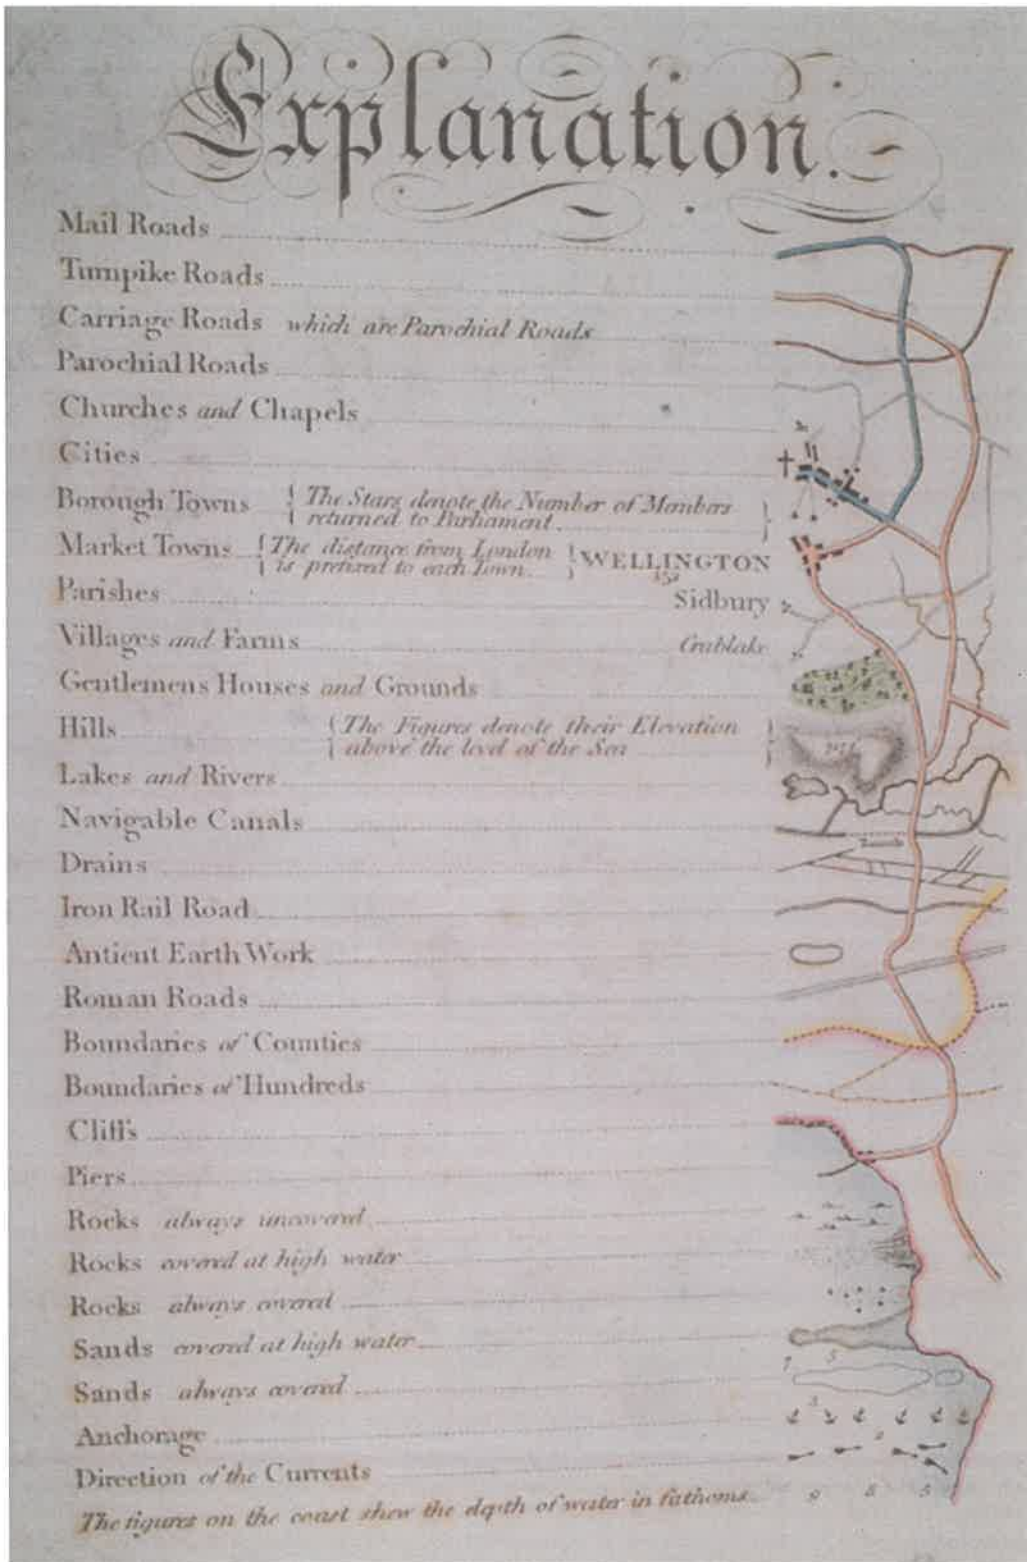 Explanation.
Mail Roads
Turnpike Roads
Carriage Roads which are Parochial Roads
Parochial Roads
Churches and Chapels
Cities
Borough Towns { The Stars denote the Number of Members
returned to Parliament }
Market Towns { The distance from London
is prefixed to each Town } WELLINGTON
Parishes Sidbury
Villages and Farms Crablake
Gentlemens Houses and Grounds
Hills { The Figures denote their Elevation
above the level of the Sea }
Lakes and Rivers
Navigable Canals
Drains
Iron Rail Road
Antient Earth Work
Roman Roads
Boundaries of Counties
Boundaries of Hundreds
Cliffs
Piers
Rocks always uncovered
Rocks covered at high water
Rocks always covered
Sands covered at high water
7 5
Sands always covered
3
Anchorage
Direction of the Currents
9 8 5
The figures on the coast shew the depth of water in fathoms.